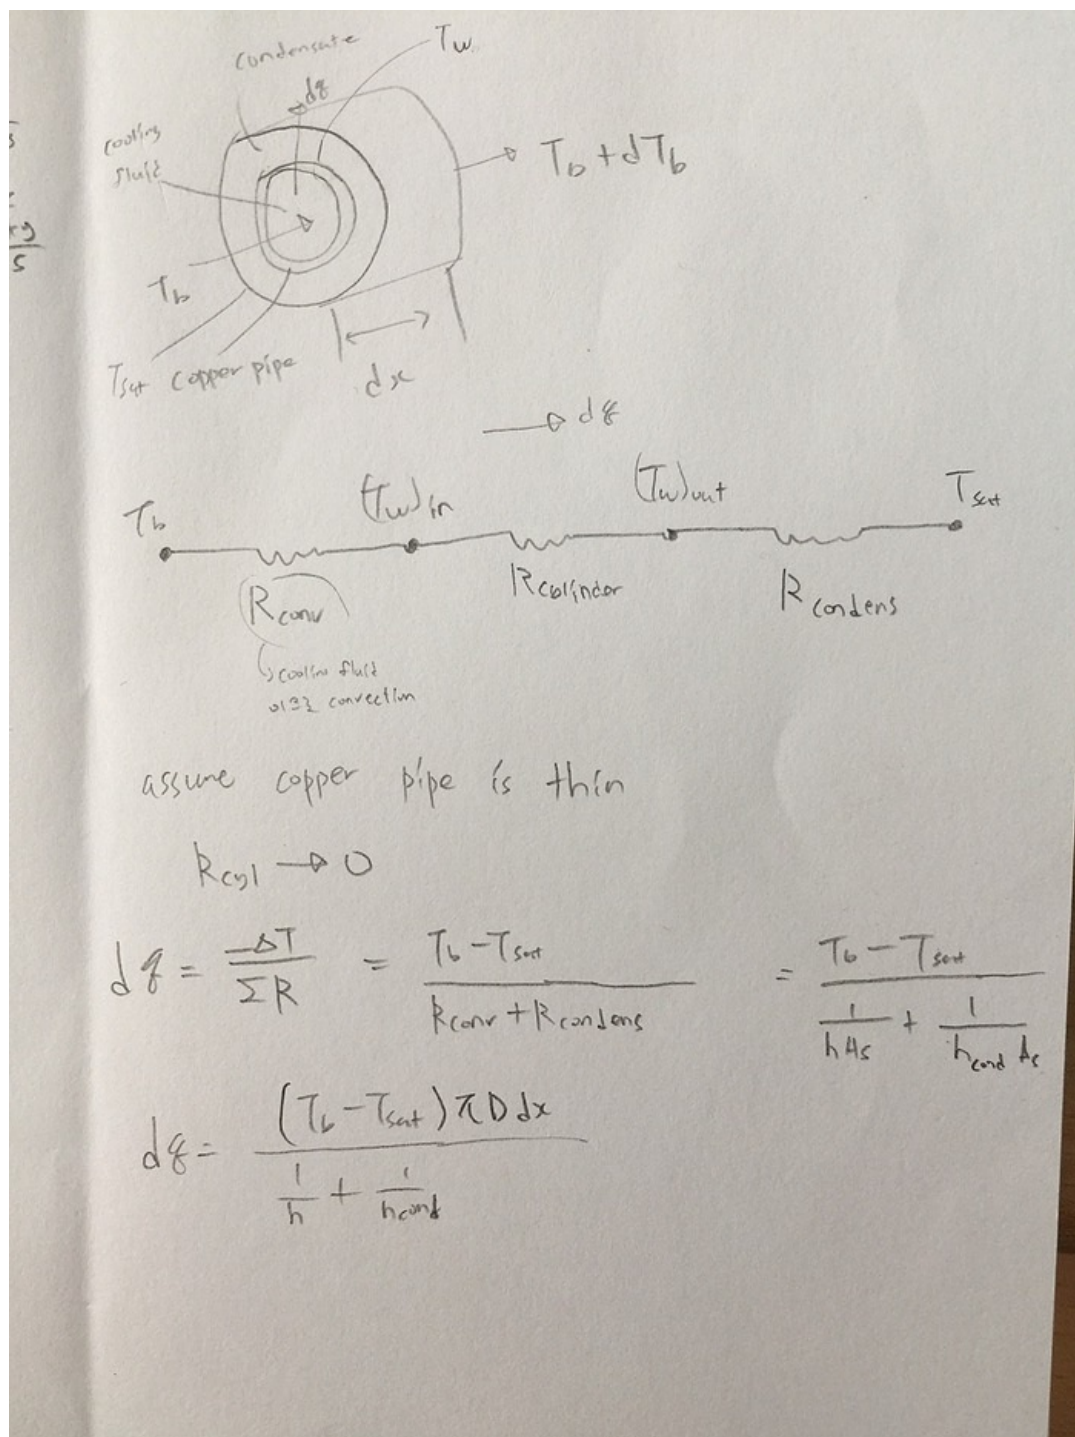 condensate
Tw
dq
cooling
fluid
Tb + dTb
Tb
Tsat copper pipe
dx
dq
Tb (Tw)in (Tw)out Tsat
Rconv Rcylinder Rcondens
cooling fluid
convection
assume copper pipe is thin
Rcyl → 0
dq = -ΔT / ΣR = Tb - Tsat / Rconv + Rcondens = Tb - Tsat / 1/hAs + 1/hcond As
dq = (Tb - Tsat) πD dx / 1/h + 1/hcond